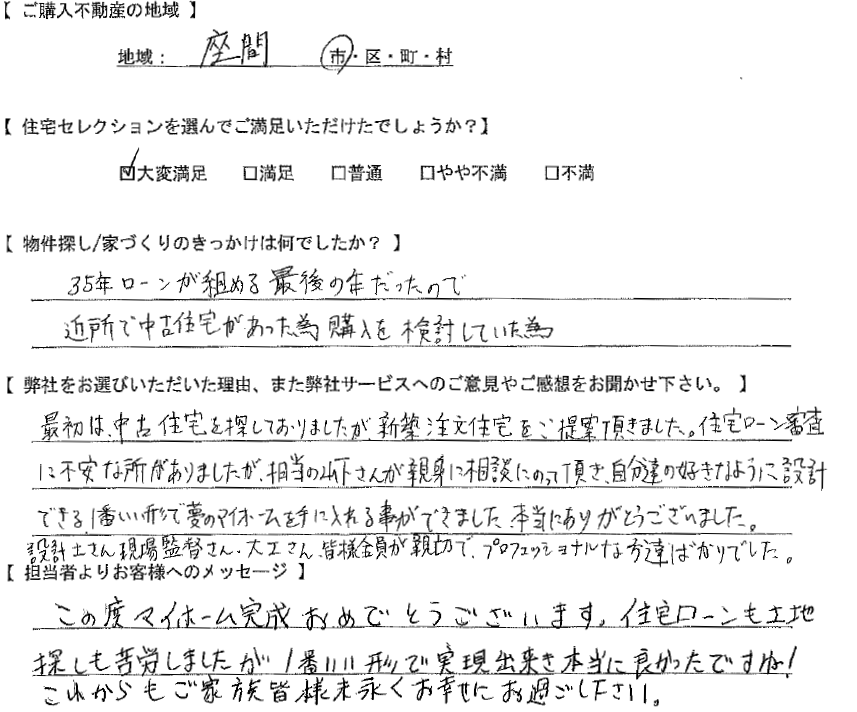 【 ご購入不動産の地域 】
地域： 座間 市・区・町・村
【 住宅セレクションを選んでご満足いただけたでしょうか？】
☑大変満足 □満足 □普通 □やや不満 □不満
【 物件探し/家づくりのきっかけは何でしたか？ 】
35年ローンが組める最後の年だったので
近所で中古住宅があった為購入を検討していた為
【 弊社をお選びいただいた理由、また弊社サービスへのご意見やご感想をお聞かせ下さい。 】
最初は、中古住宅を探しておりましたが、新築注文住宅をご提案頂きました。住宅ローン審査
に不安な所がありましたが、担当の山下さんが親身に相談にのって頂き、自分達の好きなように設計
できる1番いい形で夢のマイホームを手に入れる事ができました。本当にありがとうございました。
設計士さん、現場監督さん、大工さん、皆様全員が親切で、プロフェッショナルな方達ばかりでした。
【 担当者よりお客様へのメッセージ 】
この度マイホーム完成おめでとうございます。住宅ローンも土地
探しも苦労しましたが1番いい形で実現出来き本当に良かったですね!
これからもご家族皆様末永くお幸せにお過ごし下さい。